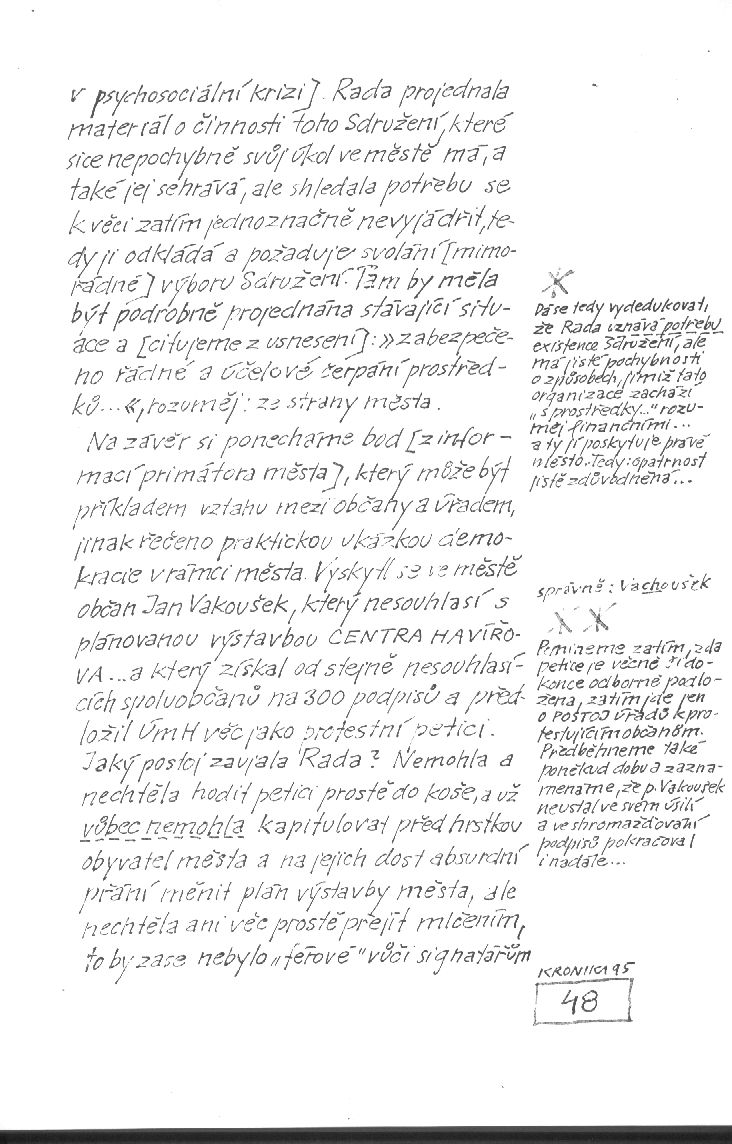 v psychosociální krizi]. Rada projednala
materiál o činnosti toho Sdružení, které
sice nepochybně svůj úkol ve městě má, a
také jej sehrává, ale shledala potřebu se
k věci zatím jednoznačně nevyjádřit, te-
dy ji odkládá a požaduje svolání [mimo-
řádné] výboru Sdružení. Tam by měla
být podrobně projednána stávající situ-
ace a [citujeme z usnesení]: »zabezpeče-
no řádné a účelové čerpání prostřed-
ků...«, rozuměj: ze strany města.
Na závěr si ponecháme bod [z infor-
mací primátora města], který může být
příkladem vztahu mezi občany a úřadem,
jinak řečeno praktickou ukázkou demo-
kracie v rámci města. Vyskytl se ve městě
občan Jan Vakoušek, který nesouhlasí s
plánovanou výstavbou CENTRA HAVÍŘO-
VA... a který získal od stejně nesouhlasí-
cích spoluobčanů na 300 podpisů a před-
ložil ÚmH věc jako protestní petici.
Jaký postoj zaujala Rada? Nemohla a
nechtěla hodit petici prostě do koše, a už
vůbec nemohla kapitulovat před hrstkou
obyvatel města a na jejich dost absurdní
přání měnit plán výstavby města, ale
nechtěla ani věc prostě přejít mlčením,
to by zase nebylo „férové" vůči signatářům
X
Dá se tedy vydedukovat,
že Rada uznává potřebu
existence Sdružení, ale
má jisté pochybnosti
o způsobech, jimiž tato
organizace zachází
„s prostředky..." rozu-
měj finančními...
a ty jí poskytuje právě
město. Tedy: opatrnost
jistě zdůvodněná...
správně: Vachoušek
X X
Pomineme zatím, zda
petice je věcně či do-
konce odborně podlo-
žena, zatím jde jen
o POSTOJ úřadů k pro-
testujícím občanům.
Předběhneme také
poněkud dobu a zazna-
menáme, že p. Vakoušek
neustal ve svém úsilí
a ve shromažďování
podpisů pokračoval
i nadále...
KRONIKA 95
48